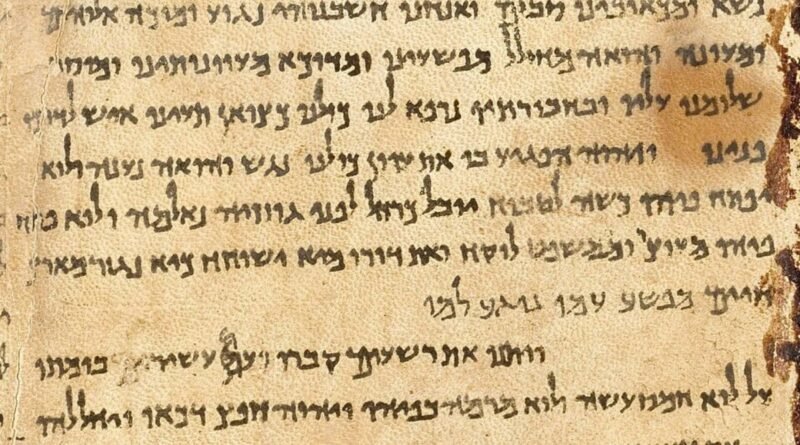 נשא ומכאובינו סבלם ואנחנו חשבנוהו נגוע ומוכה אלוהים
ומעונה והואה מחולל מפשעינו ומדוכא מעוונותינו ומוסר
שלומנו עליו ובחבורתיו נרפא לנו כולנו כצואן תעינו איש לדרכו
פנינו ויהוה הפגיע בו את עוון כולנו נגש והואה נענה ולוא
יפתח פיהו כשה לטבוח יובל כרחל לפני גוזזיה נאלמה ולוא פתח
פיהו מעוצר ומשפט לוקח ואת דורו מיא ישוחח כיא נגזר מארץ
חיים מפשע עמו נוגע למו
ויתנו את רשעים קברו ועם עשיר בומתו
על לוא חמס עשה ולוא מרמה בפיהו ויהוה חפץ דכאו ויחללהו